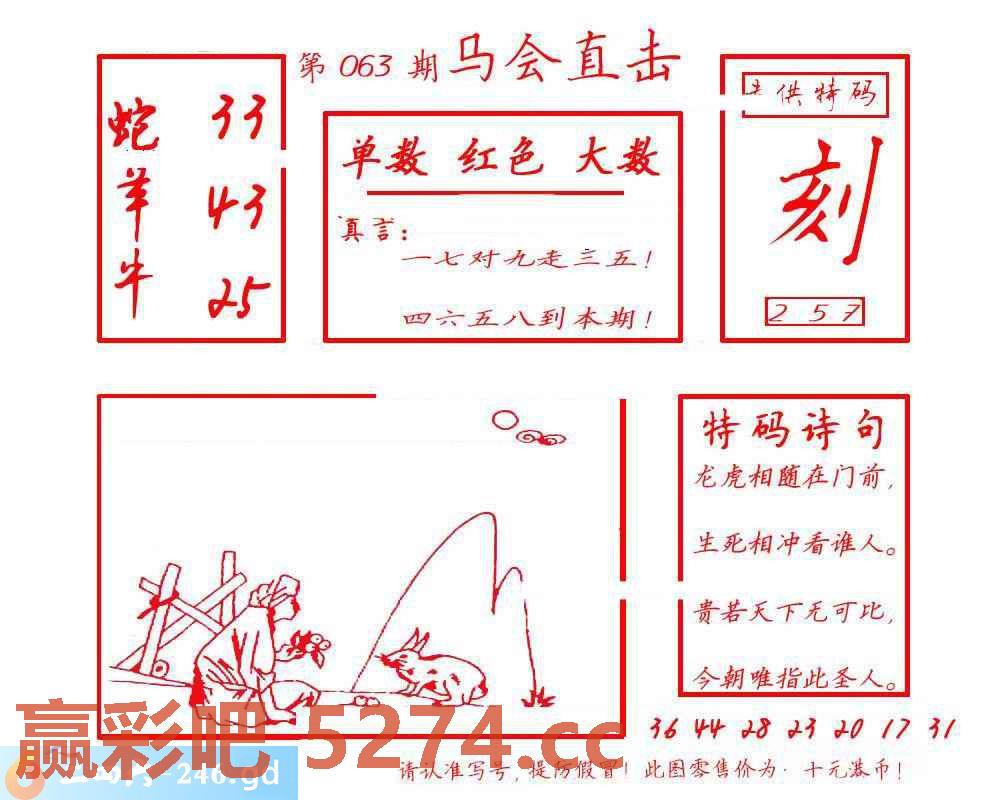 第 063 期 马会直击
蛇 33
羊 43
牛 25
单数 红色 大数
真言：
一七对九走三五！
四六五八到本期！
供特码
刻
2 5 7
特码诗句
龙虎相随在门前，
生死相冲看谁人。
贵若天下无可比，
今朝唯指此圣人。
36 44 28 23 20 17 31
赢彩吧 5274.cc
-246.gd
请认准写号，提防假冒！此图零售价为：十元港币！